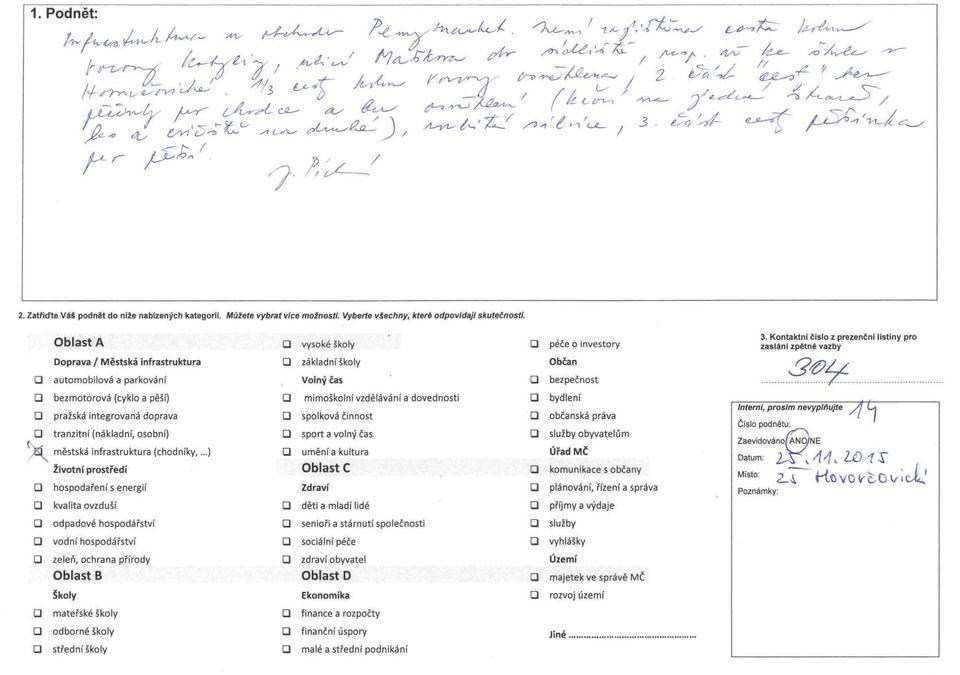 1. Podnět:
Infrastruktura u obchodu Penny market. Není zajištěna cesta kolem
továrny Kotýlin, ulicí Maškova do sídliště, resp. až ke škole v
Hornické. 1/3 cesty kolem továrny osvětlena, 2. část "cesty" bez
pěšiny pro chodce a bez osvětlení (křoví na jedné straně,
les a na druhé), rozbitá silnice, 3. část cesty pěšinka
per pěší.
2. Zatřiďte Váš podnět do níže nabízených kategorií. Můžete vybrat více možností. Vyberte všechny, které odpovídají skutečnosti.
Oblast A
Doprava / Městská infrastruktura
automobilová a parkování
bezmotorová (cyklo a pěší)
pražská integrovaná doprava
tranzitní (nákladní, osobní)
městská infrastruktura (chodníky, ...)
Životní prostředí
hospodaření s energií
kvalita ovzduší
odpadové hospodářství
vodní hospodářství
zeleň, ochrana přírody
Oblast B
Školy
mateřské školy
odborné školy
střední školy
vysoké školy
základní školy
Volný čas
mimoškolní vzdělávání a dovednosti
spolková činnost
sport a volný čas
umění a kultura
Oblast C
Zdraví
děti a mladí lidé
senioři a stárnutí společnosti
sociální péče
zdraví obyvatel
Oblast D
Ekonomika
finance a rozpočty
finanční úspory
malé a střední podnikání
péče o investory
Občan
bezpečnost
bydlení
občanská práva
služby obyvatelům
Úřad MČ
komunikace s občany
plánování, řízení a správa
příjmy a výdaje
služby
vyhlášky
Území
majetek ve správě MČ
rozvoj území
Jiné ..........................................
3. Kontaktní číslo z prezenční listiny pro
zaslání zpětné vazby
304
Interní, prosím nevyplňujte
Číslo podnětu: 14
Zaevidováno ANO/NE
Datum: 25.11.2015
Místo: ZŠ Hovorčovická
Poznámky: